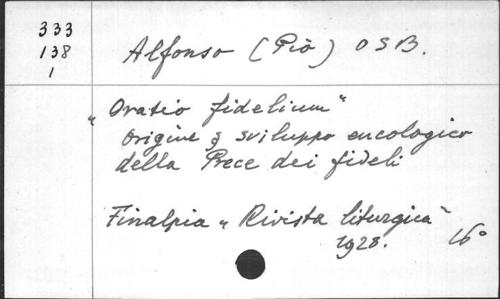 333
138
1
Alfonso (Pio) OSB.
"Oratio fidelium"
origine e sviluppo eucologico
della Prece dei fideli
Finalpia "Rivista liturgica"
1928. 16°